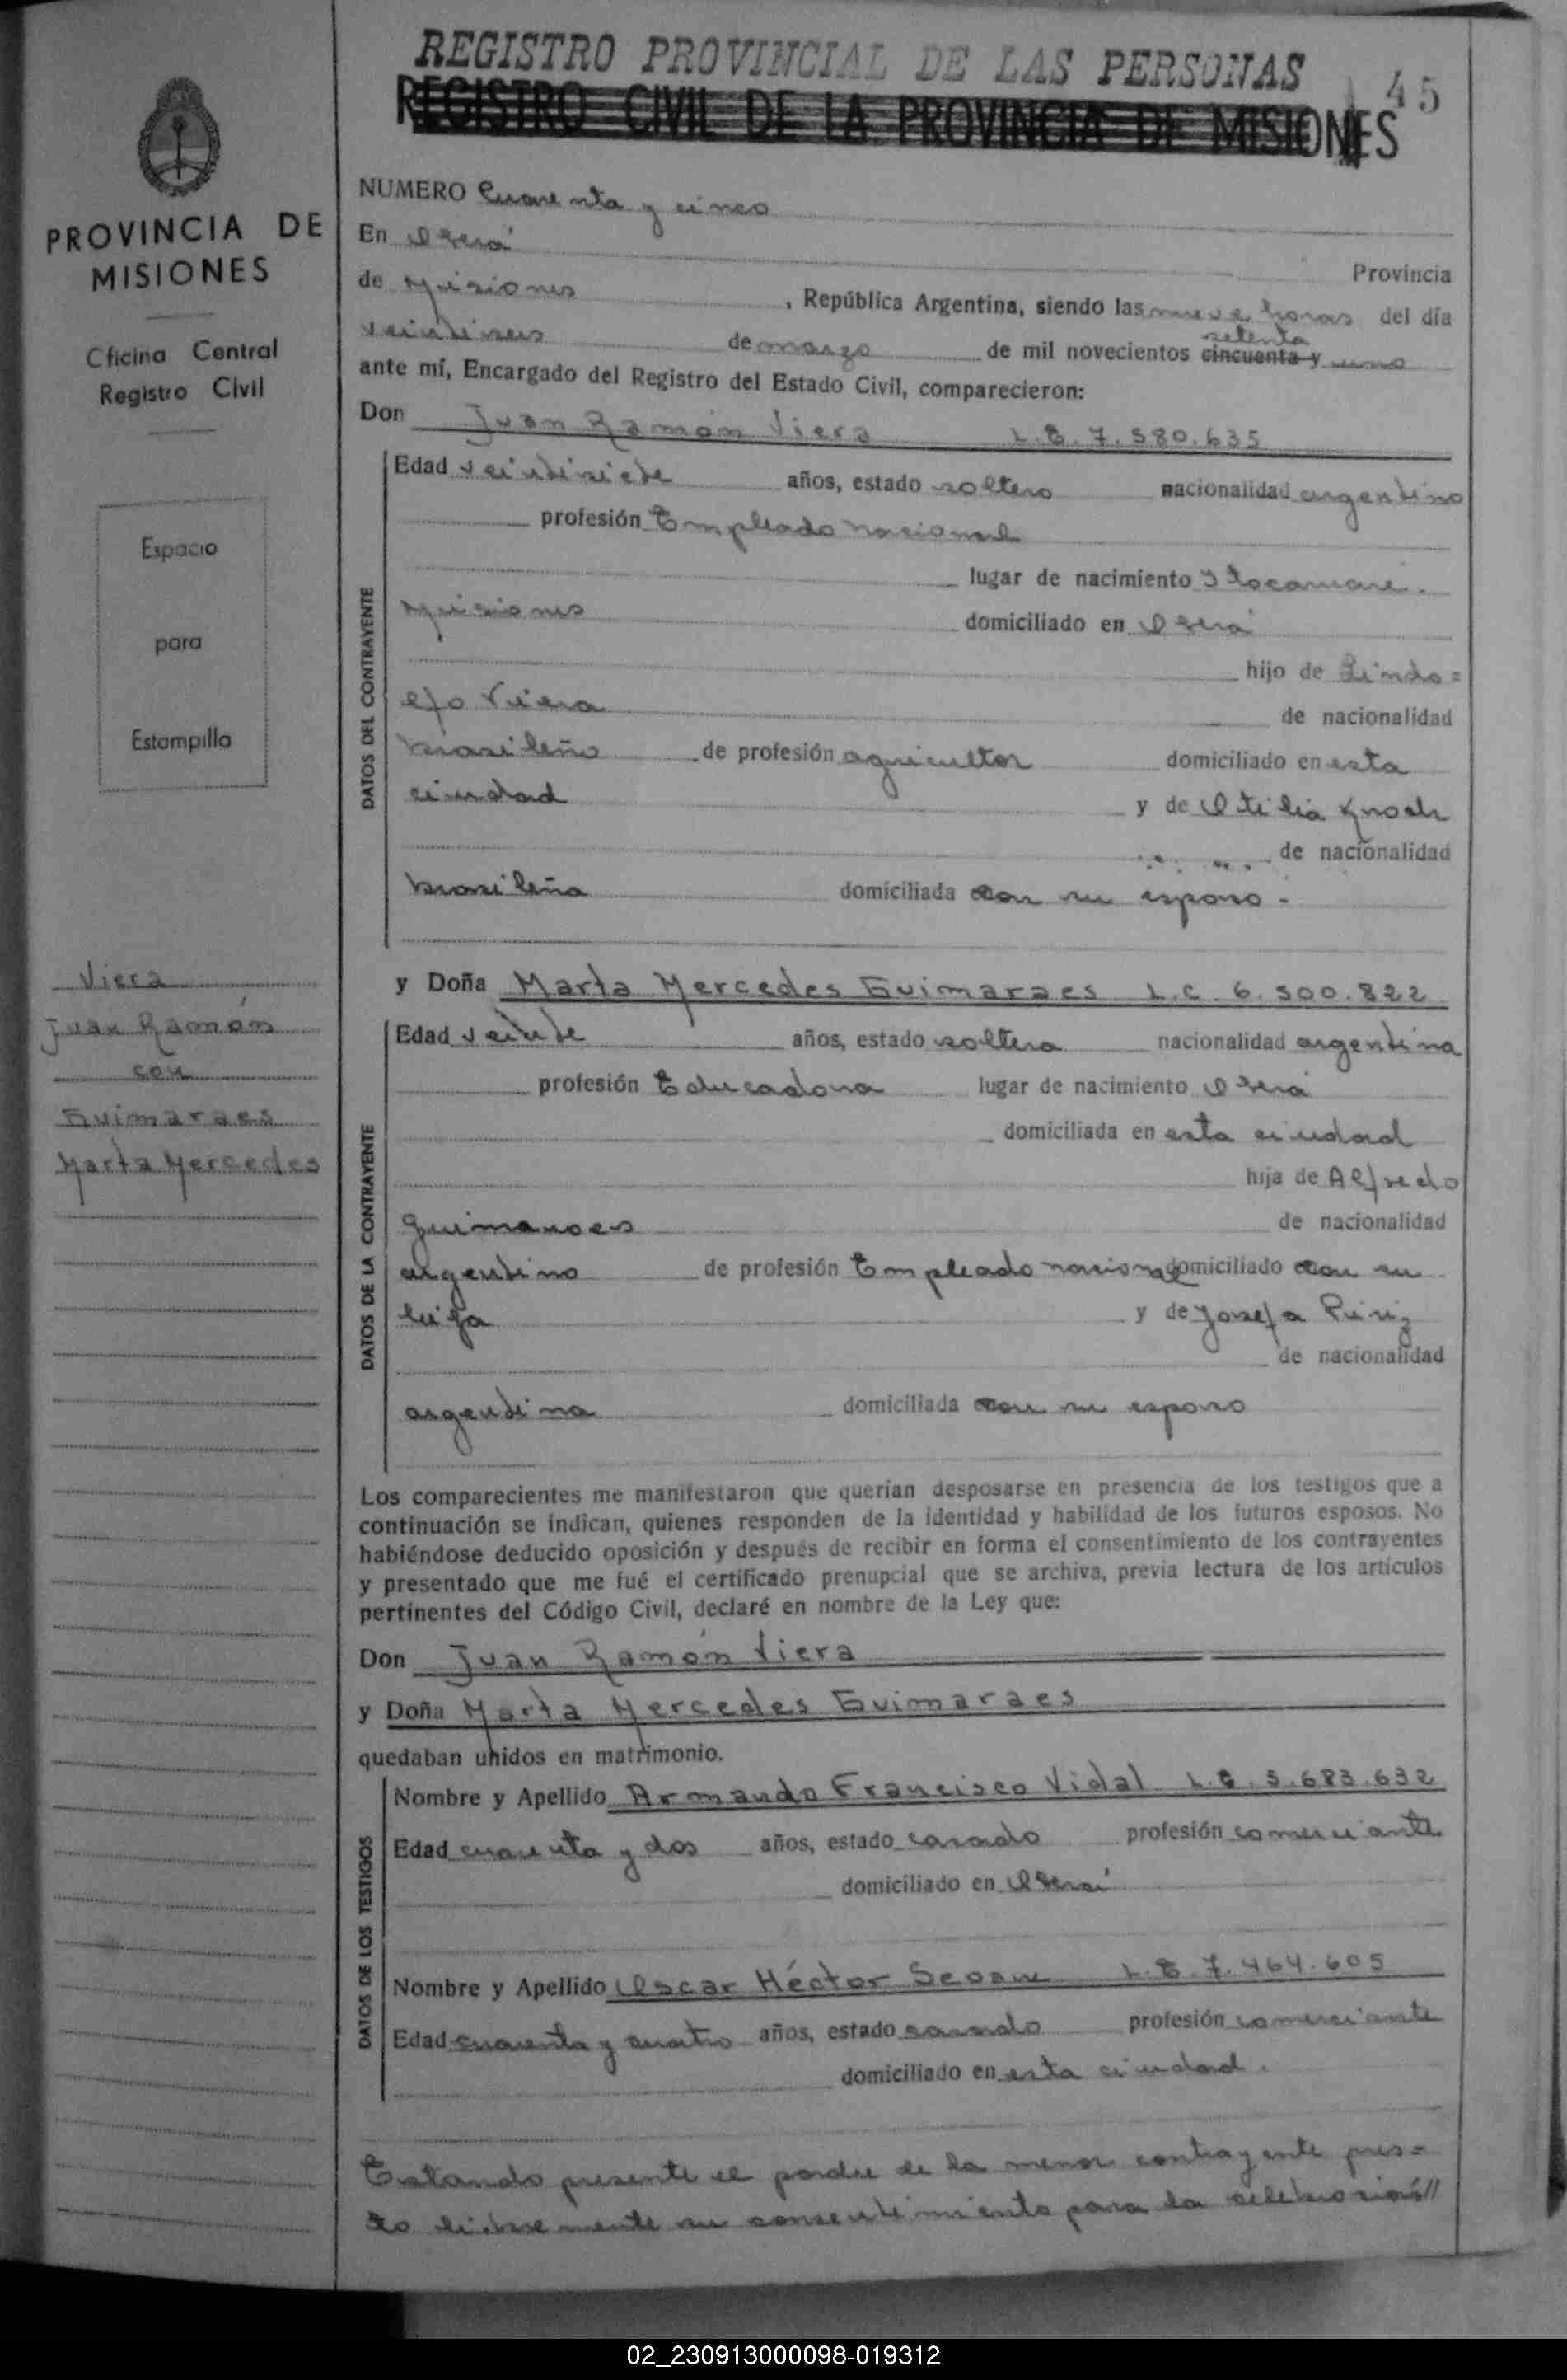 REGISTRO PROVINCIAL DE LAS PERSONAS
45
REGISTRO CIVIL DE LA PROVINCIA DE MISIONES
PROVINCIA DE
MISIONES
Oficina Central
Registro Civil
Espacio
para
Estampilla
Viera
Juan Ramón
con
Guimaraes
Marta Mercedes
NUMERO Cuarenta y cinco
En Oberá
Provincia
de Misiones, República Argentina, siendo las nueve horas del día
setenta
veintiseis de marzo de mil novecientos cincuenta y uno
ante mí, Encargado del Registro del Estado Civil, comparecieron:
Don Juan Ramón Viera L.E. 7.580.635
DATOS DEL CONTRAYENTE
Edad veintisiete años, estado soltero nacionalidad argentino
profesión Empleado nacional
lugar de nacimiento Itacaruaré.
Misiones domiciliado en Oberá
hijo de Lindo=
lfo Viera de nacionalidad
brasileño de profesión agricultor domiciliado en esta
ciudad y de Otilia Knoch
de nacionalidad
brasileña domiciliada con su esposo.-
y Doña Marta Mercedes Guimaraes L.C. 6.500.822
DATOS DE LA CONTRAYENTE
Edad veinte años, estado soltera nacionalidad argentina
profesión Educadora lugar de nacimiento Oberá
domiciliada en esta ciudad
hija de Alfredo
Guimaraes de nacionalidad
argentino de profesión Empleado nacional domiciliado con su
hija y de Josefa Piriz
de nacionalidad
argentina domiciliada con su esposo
Los comparecientes me manifestaron que querían desposarse en presencia de los testigos que a
continuación se indican, quienes responden de la identidad y habilidad de los futuros esposos. No
habiéndose deducido oposición y después de recibir en forma el consentimiento de los contrayentes
y presentado que me fué el certificado prenupcial que se archiva, previa lectura de los artículos
pertinentes del Código Civil, declaré en nombre de la Ley que:
Don Juan Ramón Viera
y Doña Marta Mercedes Guimaraes
quedaban unidos en matrimonio.
DATOS DE LOS TESTIGOS
Nombre y Apellido Armando Francisco Vidal L.E. 5.683.632
Edad cuarenta y dos años, estado casado profesión comerciante
domiciliado en Oberá
Nombre y Apellido Oscar Héctor Seoane L.E. 7.464.605
Edad cuarenta y cuatro años, estado casado profesión comerciante
domiciliado en esta ciudad.
Estando presente el padre de la menor contrayente pres=
to libremente su consentimiento para la celebración//
02_230913000098-019312